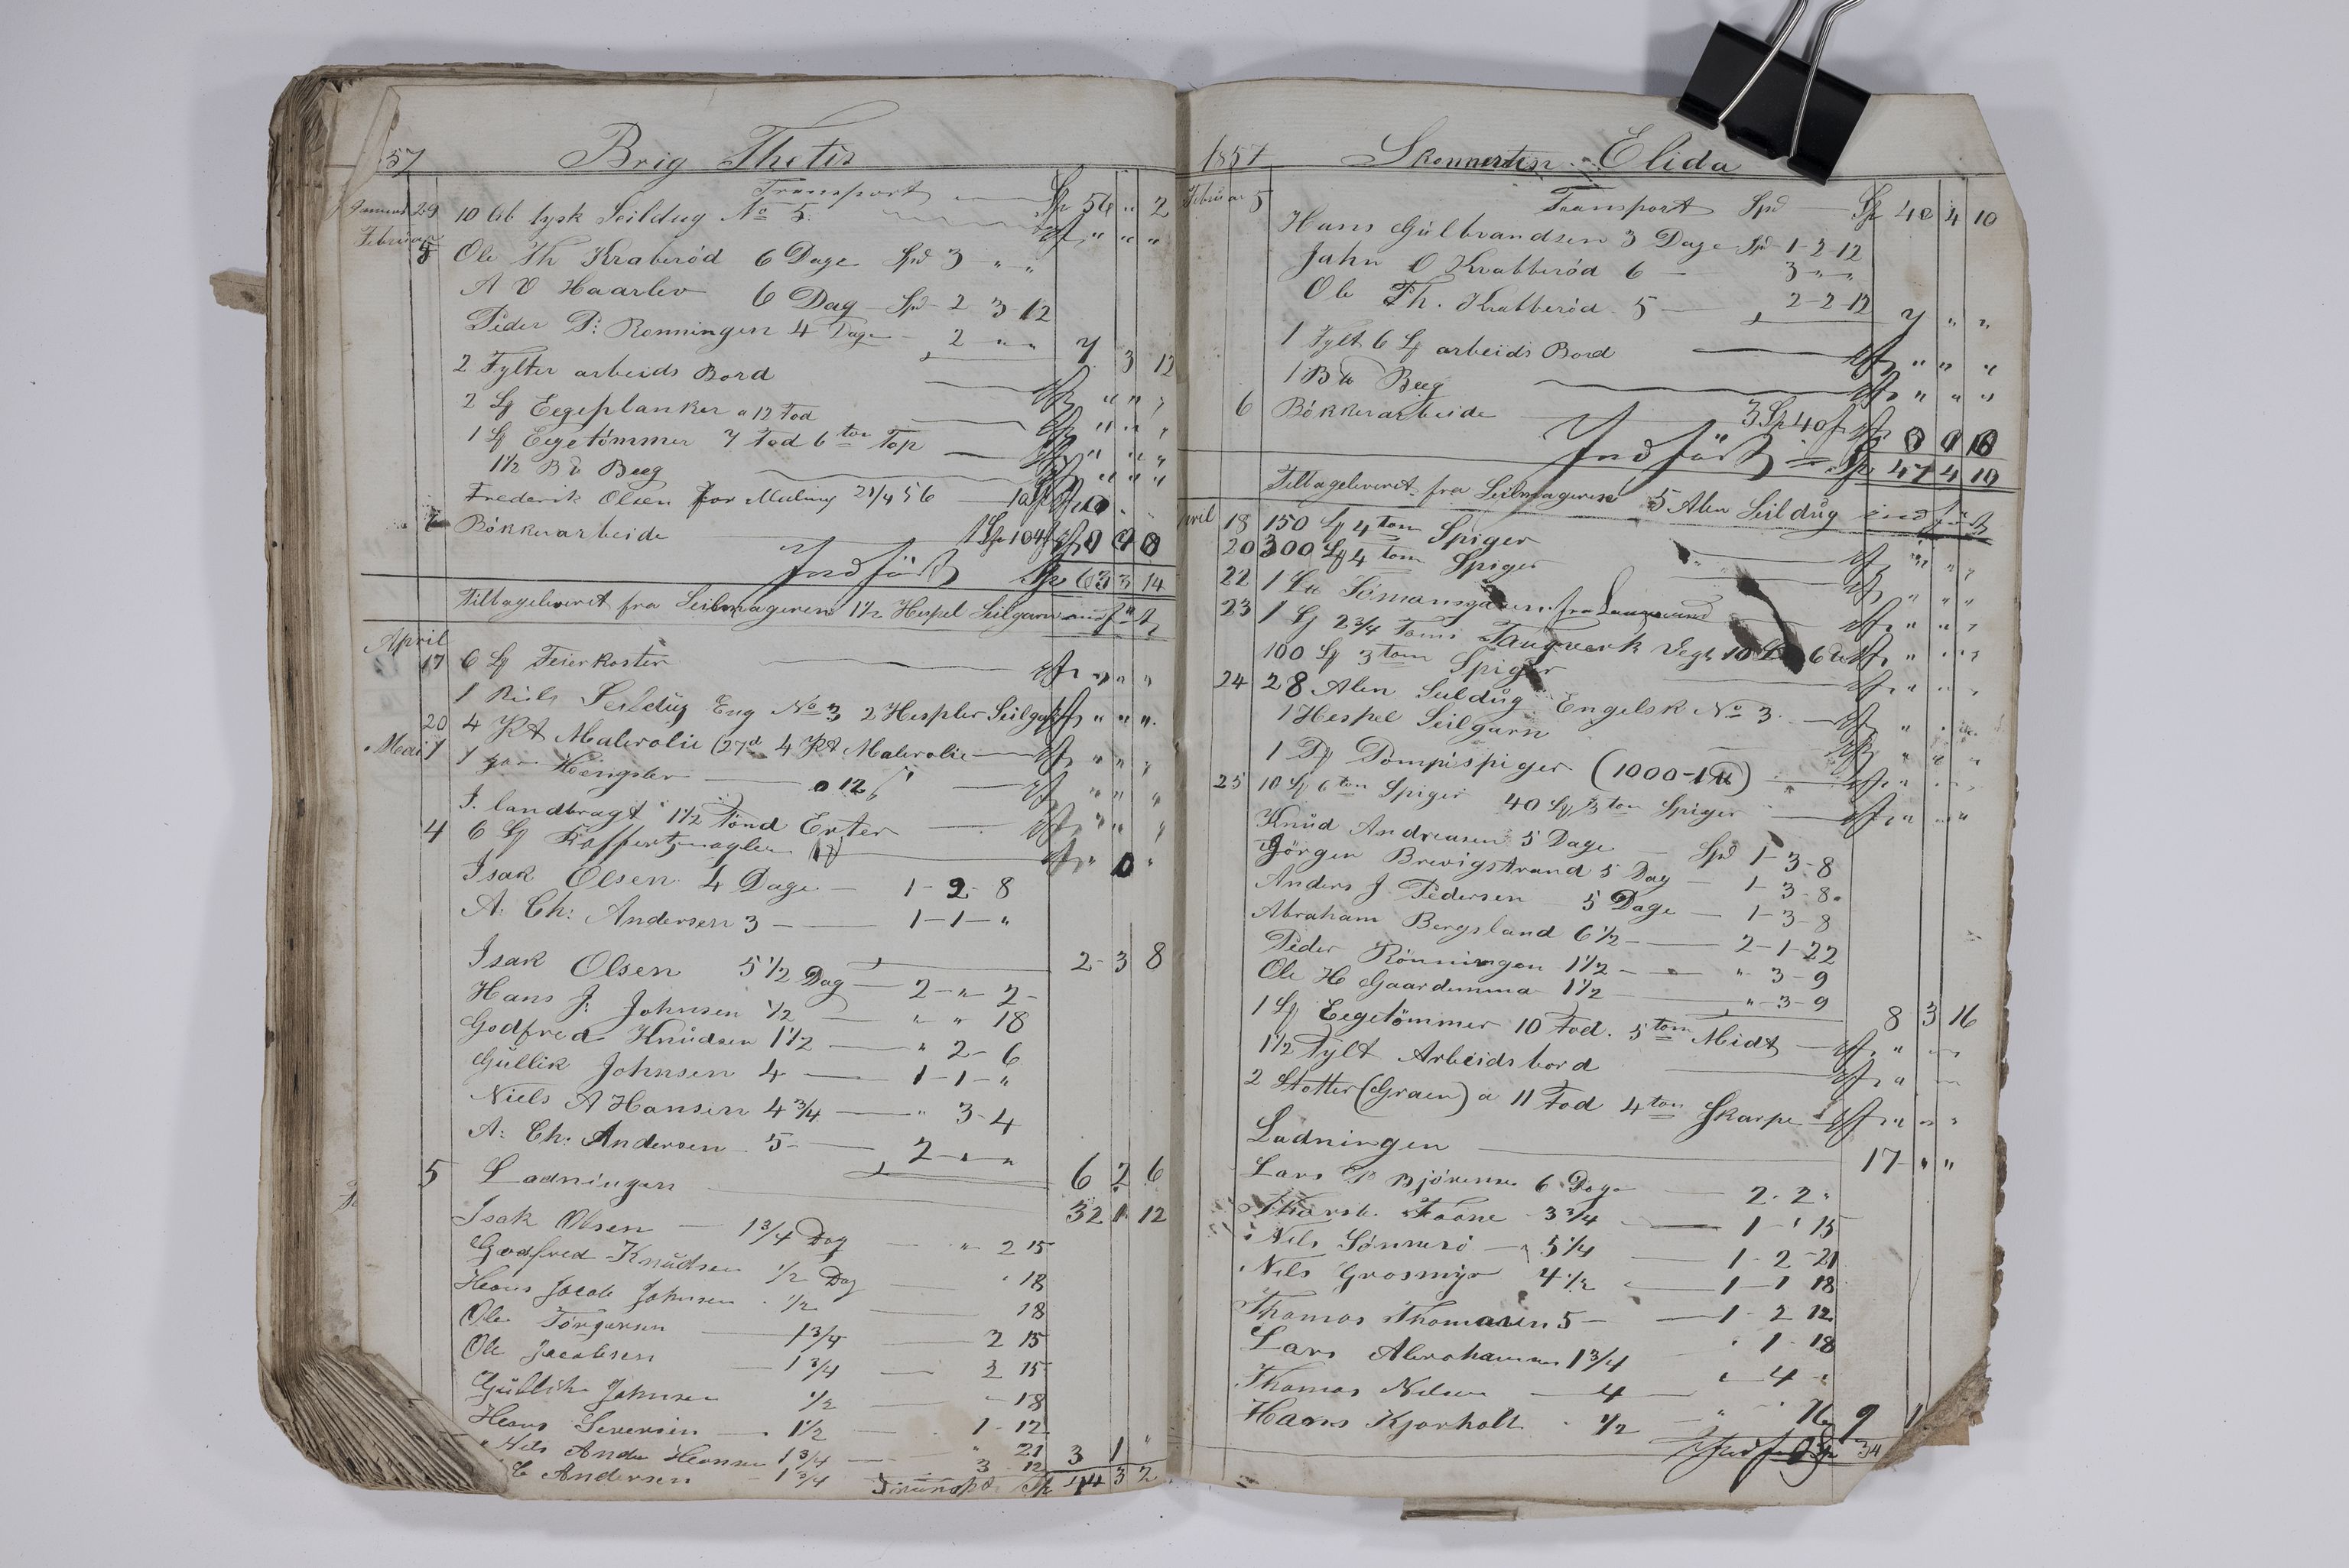 57 Brig Thetis
Transport Sp 56 " 2
Januar 29 10 Al tysk Seildug No 5 " " "
Februar 5 Ole Th Kraberöd 6 Dage Spd 3 " "
A O Haarlev 6 Dag Spd 2 3 12
Peder P: Ronningen 4 Dage 2 " " 7 3 12
2 Tylter arbeids Bord " " "
2 Eegeplanker a 12 Fod " " "
1 Eegetömmer 7 Fod 6 tom Top " " "
1½ B Beeg " " "
Frederik Olsen for Muling 21/4 56
Bökkerarbeide 1 Sp 104
Indfört Sp 63 3 14
Tilbageleveret fra Seilmageren 1½ Hespel Seilgarn indfört
April
17 6 Feierkoster " " "
1 Rul Seildug Eng No 3 2 Hespler Seilgarn " " "
20 4 Pt Malerolie (27d 4 Pt Malerolie " " "
Mai 1 1 par Hengsler a 12 " " "
I. landbragt 1½ Tönd Erter " " "
4 6 Koffertnagler
Isak Olsen 4 Dage 1-2-8
A: Ch: Andersen 3 1-1-" 2-3 8
Isak Olsen 5½ Dag 2-"-2-
Hans J: Johnsen ½ " " 18
Godfred Knudsen 1½ " 2-6
Gullik Johnsen 4 1-1-"
Niels A Hansen 4¾ " 3-4
A: Ch: Andersen 5 2 " " 6 2 6
5 Ladningen 32 1 12
Isak Olsen 1¾ Dag " 2 15
Godfred Knudsen ½ Dag 18
Hans Jacob Johnsen ½ 18
Ole Torgersen 1¾ 2 15
Ole Jacobsen 1¾ 2 15
Gullik Johnsen ½ 18
Hans Seversen 1½ 1-12
Nils Andr Hansen 1¾ " 21 3 1 "
C Andersen 1¾ 3 12
Transpt Sp 3 2
1857 Skonnerten Elida
Februar 5 Transport Spd Sp 40 4 10
Hans Gulbrandsen 3 Dage Spd 1-2-12
Jahn O Krabberöd 6 3 " "
Ole Th. Krabberöd 5 2-2-12 7 " "
1 Tylt 6 arbeids Bord " " "
1 B Beeg " " "
6 Bökkerarbeide 3 Sp 40
Indfört Sp 47 4 10
Tilbageleveret fra Seilmageren 5 Alen Seildug indfört
April 18 150 4 tom Spiger " " "
20 300 4 tom Spiger " " "
22 1 Sömansgarn fra " " "
23 1 2¾ Toms Tougverk Vegt 10 6 " " "
100 3 tom Spiger " " "
24 28 Alen Seildug Engelsk No 3.
1 Hespel Seilgarn
1 Dompspiger (1000-1
25 10 6 tom Spiger 40 3 tom Spiger
Knud Andreasen 5 Dage Spd 1-3-8
Jörgen Brevigstrand 5 Dag 1-3-8
Anders J. Pedersen 5 Dage 1-3-8
Abraham Bergsland 6½ 2-1-22
Peder Rönningen 1½ " 3-9
Ole H Gaardemma 1½ " 3-9 8 3 16
1 Eegetömmer 10 Fod. 5 tom Midt
1½ Tylt Arbeidsbord
2 Støtter (Graen) a 11 Fod 4 tom Skarpe
Ladningen 17 " "
Lars P 6 Dage 2. 2 "
Foone 3¾ 1 " 15
Nils 5¼ 1-2-21
Nils Grosmyr 4½ 1-1 18
Thomas Thomasen 5 1-2 12
Lars Abrahamsen 1¾ 1-18
Thomas Nilsen 4 " 4
Hans Kjorholt ½ 9 1
34